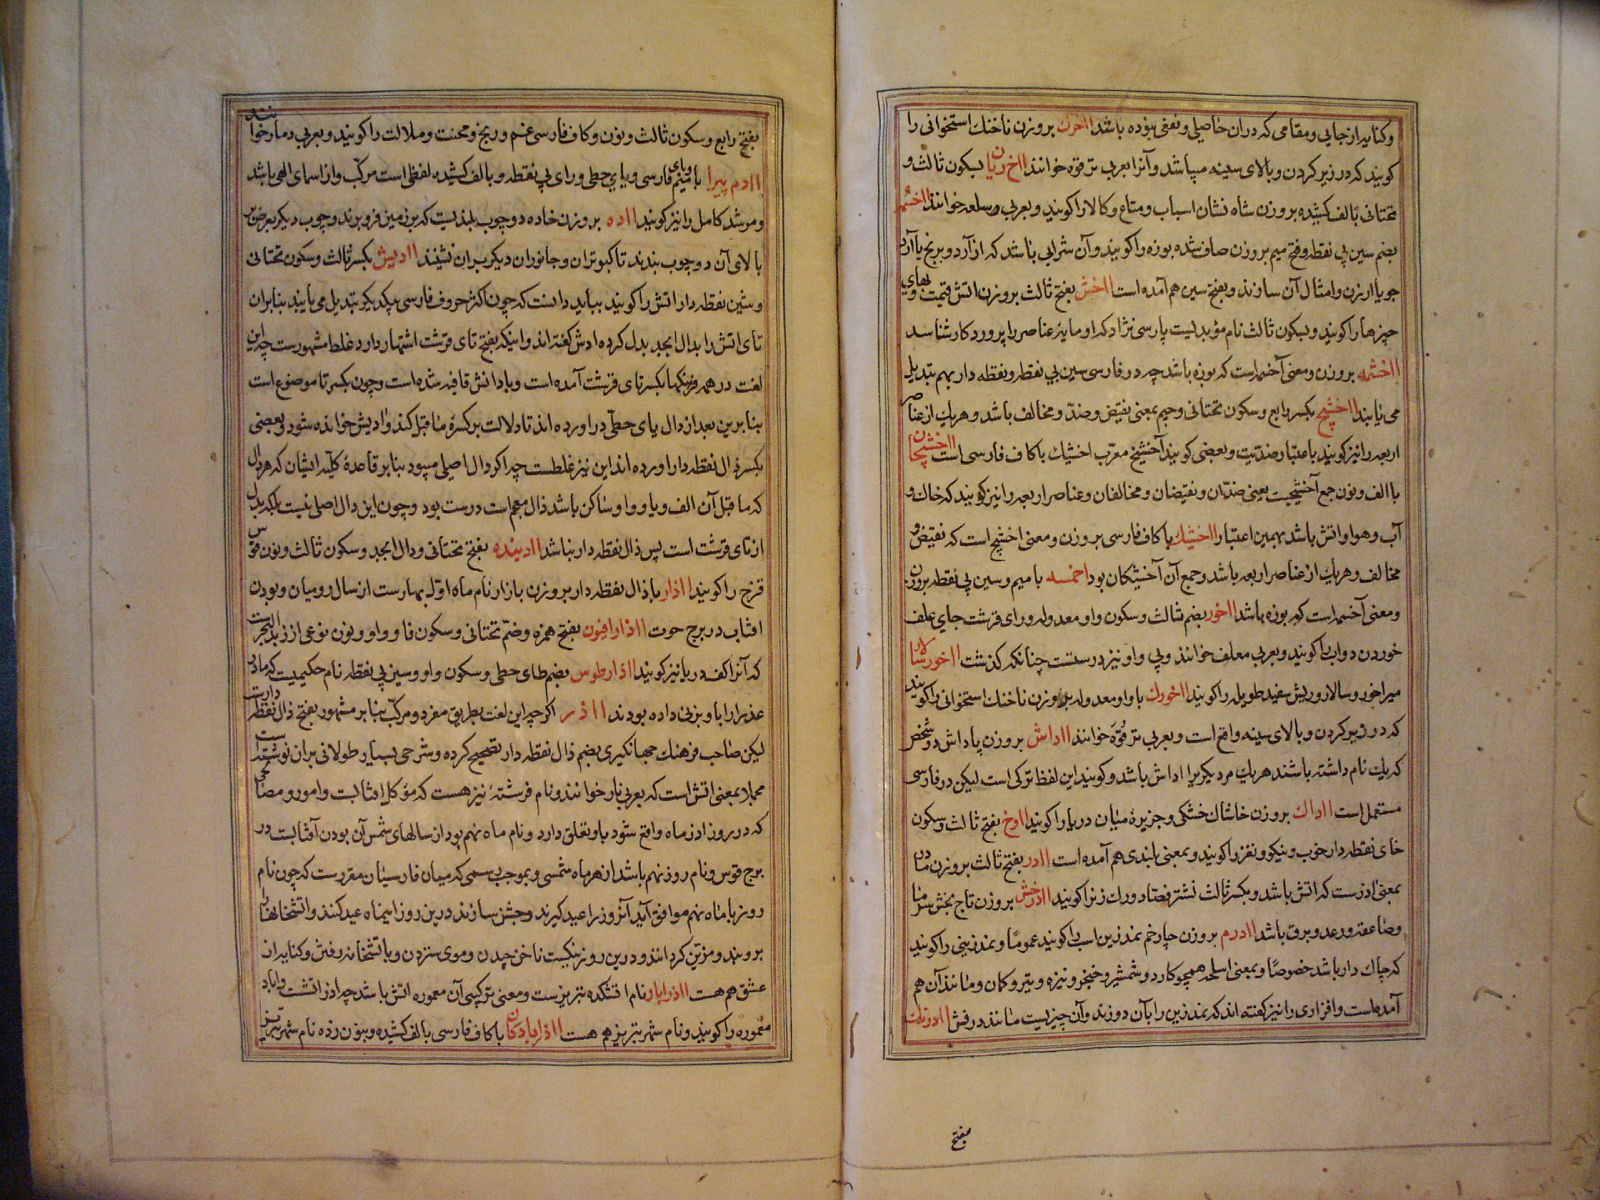 و کنایه از جایی و مقامی که در آن حاصلی و نفعی بوده باشد آخرک بر وزن ناخنک استخوانی را
کویند که در زیر کردن و بالای سینه میباشد و آنرا بعربی ترقوه خوانند آخریان بسکون ثالث و
تحتانی بالف کشیده بر وزن شاه نشان اسباب و متاع و کالا را کویند و بعربی سلعه خوانند آخسمه
بضم سین بی نقطه و فتح میم بر وزن صاف شده بوزه را کویند و آن شرابی باشد که از آرد و برنج یا آرد
جو یا ارزن و امثال آن سازند و بفتح سین هم آمده است آخش بفتح ثالث بر وزن اتش قیمت و بهای
چیزها را کویند و بسکون ثالث نام مؤبدیست پارسی نژاد که او مایهٔ عناصر را پرورد کار شناسد
آخشمه بر وزن و معنی آخسمه است که بوزه باشد چه در فارسی سین بی نقطه و نقطه دار بهم تبدیل
می یابند آخشیج بکسر رابع و سکون تحتانی و جیم بمعنی نقیض و ضدّ و مخالف باشد و هر یک از عناصر
اربعه را نیز کویند باعتبار ضدّیت و بعضی کویند آخشیج معرّب اخشیک با کاف فارسی است آخشیجان
با الف و نون جمع آخشیجست یعنی ضدّان و نقیضان و مخالفان و عناصر اربعه را نیز کویند که خاک و
آب و هوا و اتش باشد بهمین اعتبار آخشیک با کاف فارسی بر وزن و معنی اخشیج است که نقیض و
مخالف و هر یک از عناصر اربعه باشد و جمع آن آخشیکان بود اخمسه با میم و سین بی نقطه بر وزن
و معنی آخسمه است که بوزه باشد آخور بضم ثالث و سکون واو معدوله و رای قرشت جای علف
خوردن دواب را کویند و بعربی معلف خوانند و بی واو نیز درستست چنانکه کذشت آخورسالار
میراخور و سالار و ریش سفید طویله را کویند آخورک با واو معدوله بر وزن ناخنک استخوانی را کویند
که در زیر کردن و بالای سینه واقع است و بعربی ترقوّه خوانند آداش بر وزن پاداش دو شخص
که یک نام داشته باشند هر یک مر دیکریرا اداش باشد و کویند این لفظ ترکی است لیکن در فارسی
مستعمل است آداک بر وزن خاشاک خشکی و جزیرهٔ میان دریا را کویند آدخ بفتح ثالث و سکون
خای نقطه دار خوب و نیکو و نغز را کویند و بمعنی بلندی هم آمده است آدر بفتح ثالث بر وزن مادر
بمعنی اذرست که اتش باشد و بکسر ثالث نشتر فصّاد و رک زن را کویند آدرخش بر وزن تاج بخش سرما
و صاعقه و رعد و برق باشد آدرم بر وزن چارخم نمد زین اسب را کویند عموماً و نمد زینی را کویند
که چاک دار باشد خصوصاً و بمعنی اسلحه همچو کارد و شمشیر و خنجر و نیزه و تیر و کمان و مانند آن هم
آمده است و افزاری را نیز کفته اند که نمد زین را بآن دوزند و آن چیزیست مانند درفش آدرنک
بفتح
بفتح رابع و سکون ثالث و نون و کاف فارسی غم و رنج و محنت و ملالت را کویند و بعربی دمار خوانند
آدم پیرا با میم و بای فارسی و یای حطی و رای بی نقطه و بالف کشیده لفظی است مرکّب و از اسمای الهی باشد
و مرشد کامل را نیز کویند آده بر وزن خاده دو چوب بلندیست که بزمین فرو برند و چوب دیکر بعرض بر
بالای آن دو چوب بندند تا کبوتران و جانوران دیکر بران نشینند آدیش بکسر ثالث و سکون تحتانی
و شین نقطه دار اتش را کویند بباید دانست که چون اکثر حروف فارسی بیکدیکر تبدیل می یابند بنابران
تای اتش را بدال ابجد بدل کرده ادش کفته اند و اینکه بفتح تای قرشت اشتهار دارد غلط مشهورست چه این
لغت در همه فرهنکها بکسر تای قرشت آمده است و با دانش قافیه شده است و چون بکسر تا موضوع است
بنابرین بعد از دال یای حطّی در اورده اند تا دلالت بر کسرهٔ ماقبل کند و ادیش خوانده شود و بعضی
بکسر ذال نقطه دار اورده اند این نیز غلطست چرا که دال اصلی میبود بنابر قاعدهٔ کلّیه ایشان که هر دال
که ماقبل آن الف و یا و واو ساکن باشد ذال معجم است درست بود و چون این دال اصلی نیست بلکه بدل
از تای قرشت است پس ذال نقطه دار نباشد آدینده بفتح تحتانی و دال ابجد و سکون ثالث و نون قوس
قزح را کویند آذار با ذال نقطه دار بر وزن بازار نام ماه اوّل بهارست از سال رومیان و بودن
افتاب در برج حوت آذارافیون بفتح همزه و ضمّ تحتانی و سکون فا و واو و نون نوعی از زبد البحرست
که آنرا کف دریا نیز کویند آذارطوس بضم طای حطی و سکون واو و سین بی نقطه نام حکیمیست که مادر
عذرا را باو بزنی داده بودند آذر اکر چه این لغت بطریق مفرد و مرکّب بنابر مشهور بفتح ذال نقطه دارست
لیکن صاحب فرهنک جهانکیری بضم ذال نقطه دار تصحیح کرده و شرحی بسیار طولانی بران نوشته است
مجملا بمعنی اتش است که بعربی نار خوانند و نام فرشتهٔ نیز هست که مؤکل افتابست و امور و مصالحی
که در روز اذر ماه واقع شود باو تعلق دارد و نام ماه نهم بود از سالهای شمسی و آن بودن آفتابست در
برج قوس و نام روز نهم باشد از هر ماه شمسی و بموجب رسمی که میان فارسیان مقررست که چون نام
روز با ماه نهم موافق آید آنروز را عید کیرند و جشن سازند درین روز ازینماه عید کنند و اتشخانها را
بروبند و مزیّن کردانند و درین روز نیکست ناخن چیدن و موی ستردن و باتشخانه رفتن و کنایه از
عشق هم هست آذراباد نام اتشکده تبریزست و معنی ترکیبی آن معموره اتش باشد چه اذر اتشست و اباد
معموره را کویند و نام شهر تبریز هم هست آذرابادکان با کاف فارسی بالف کشیده و بنون زده نام شهر تبریز